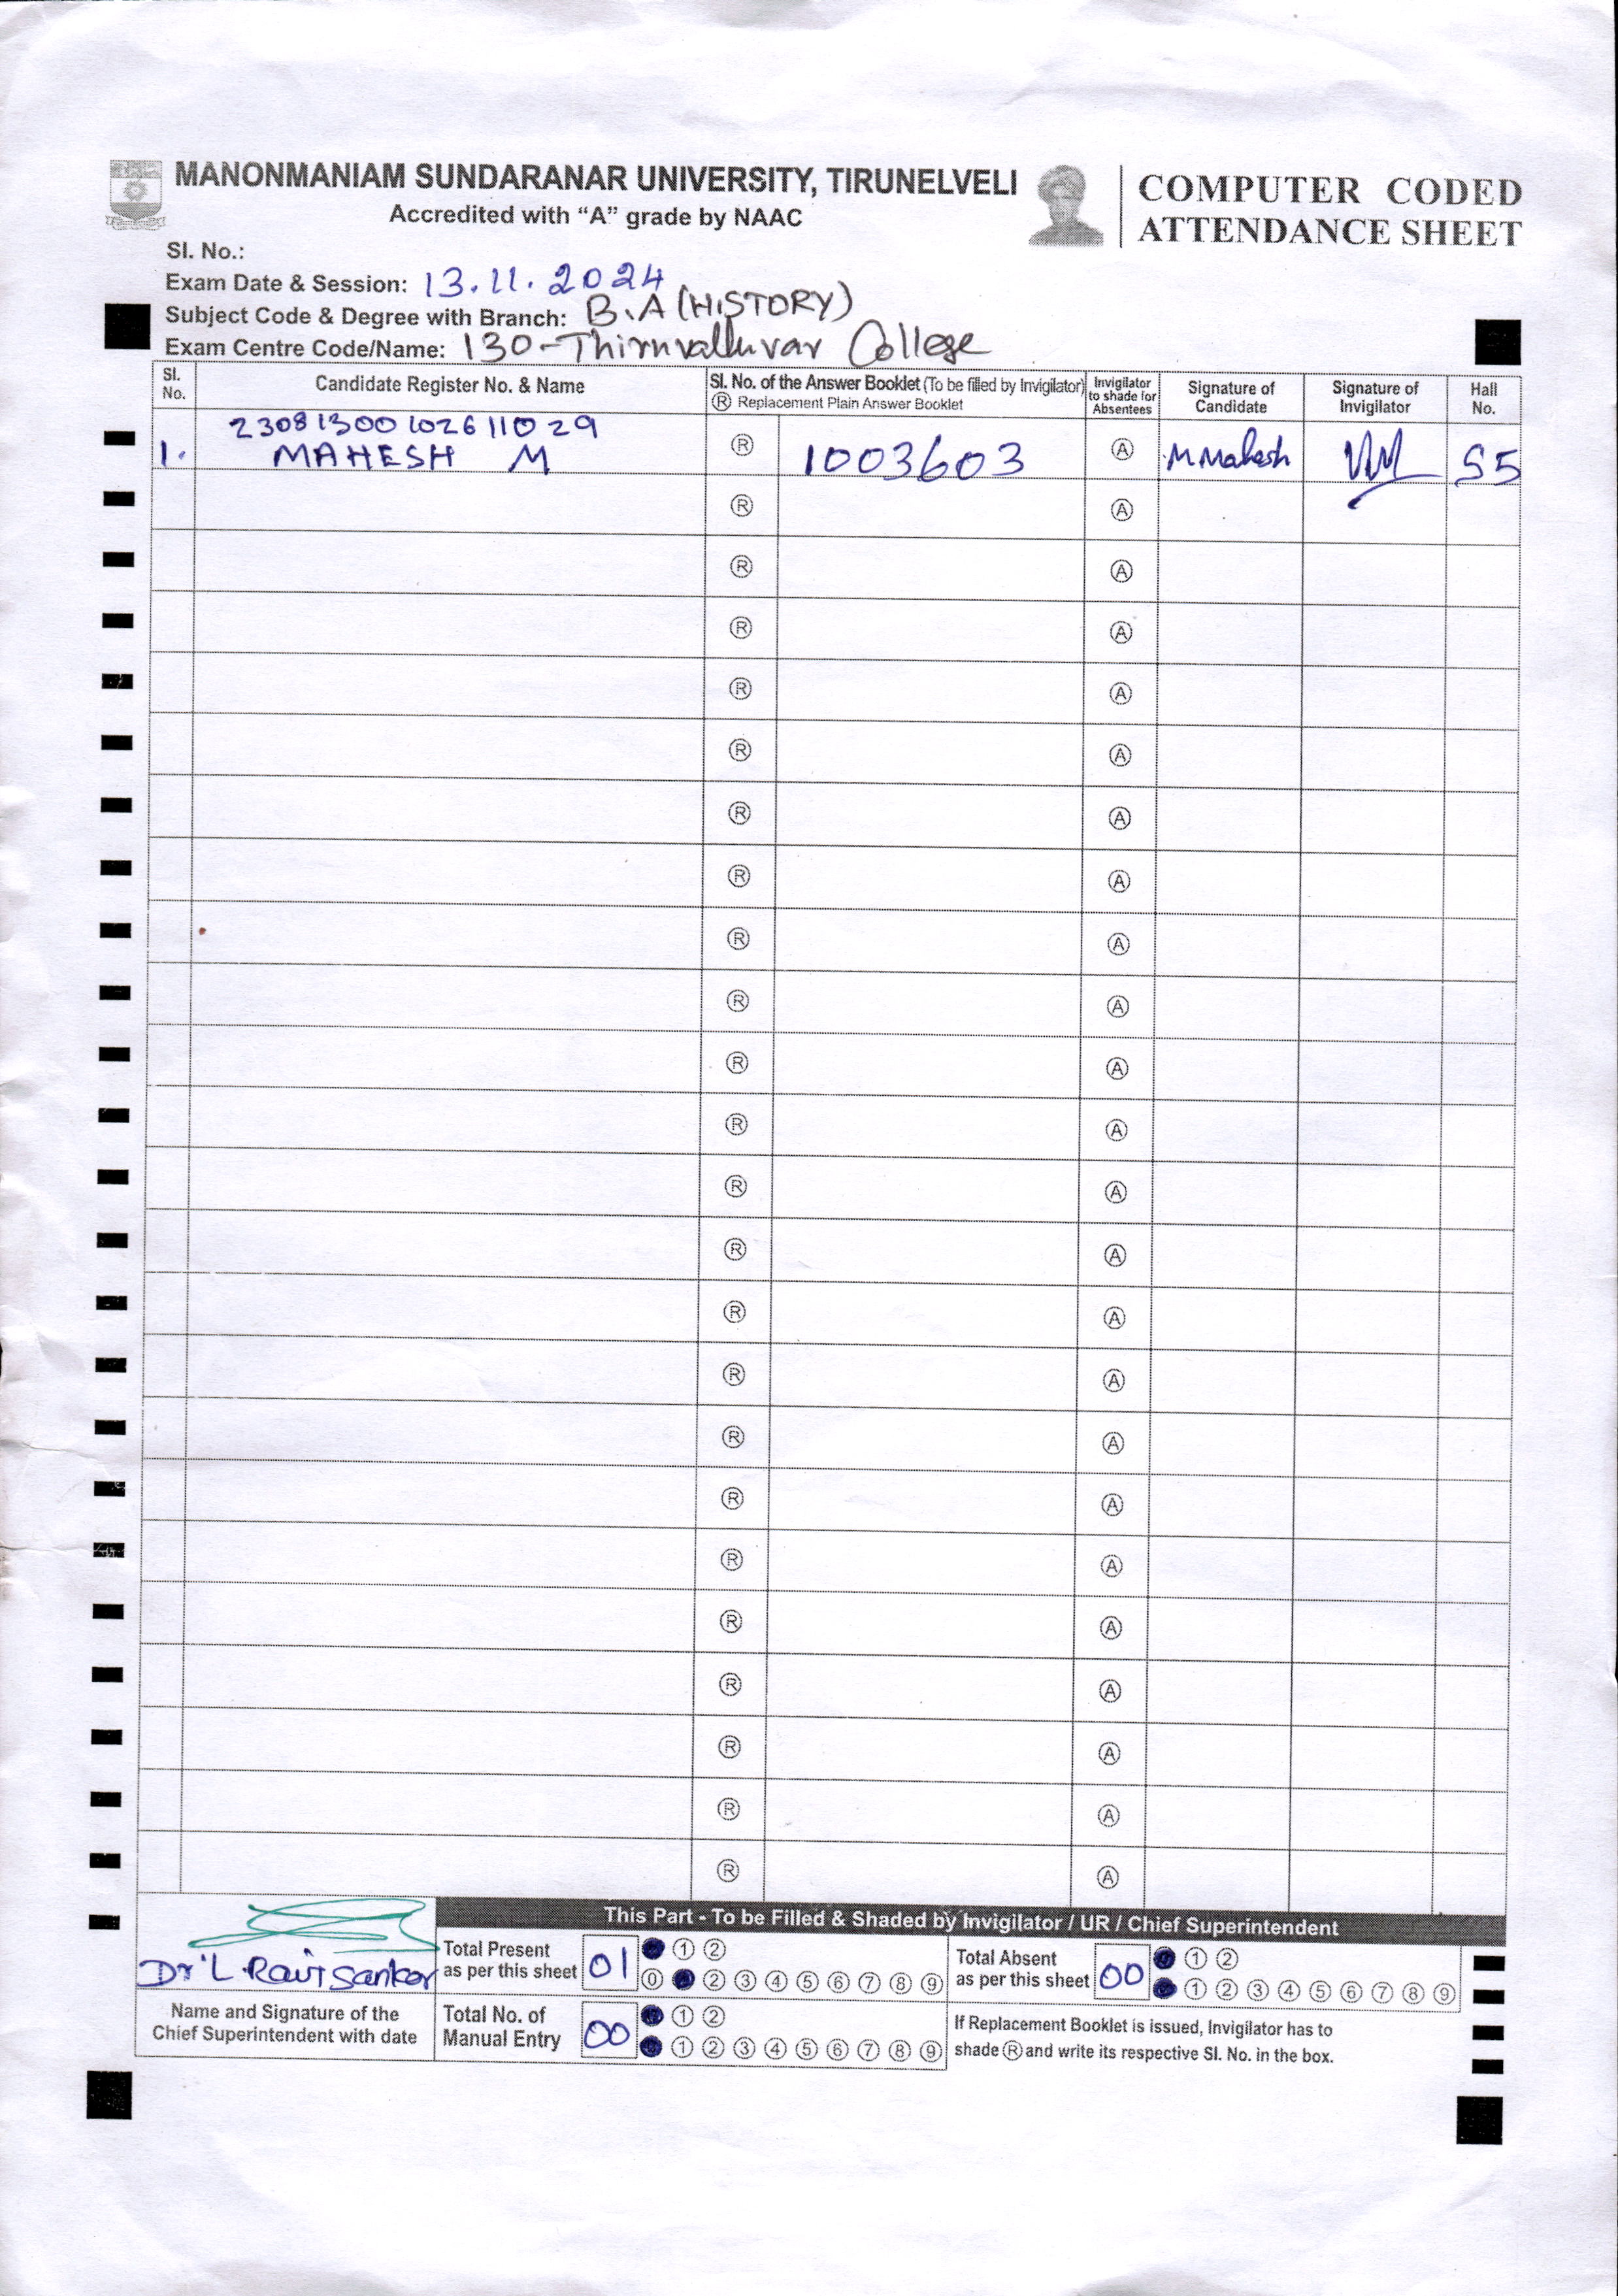 MANONMANIAM SUNDARANAR UNIVERSITY, TIRUNELVELI
Accredited with “A” grade by NAAC
COMPUTER CODED
ATTENDANCE SHEET
Sl. No.:
Exam Date & Session: 13.11.2024
Subject Code & Degree with Branch: B.A (HISTORY)
Exam Centre Code/Name: 130-Thiruvalluvar College
Sl. No.
Candidate Register No. & Name
Sl. No. of the Answer Booklet (To be filled by Invigilator)
Ⓡ Replacement Plain Answer Booklet
Invigilator to shade for Absentees
Signature of Candidate
Signature of Invigilator
Hall No.
23081300102611029
1. MAHESH M Ⓡ 1003603 Ⓐ M Mahesh S5
Ⓡ Ⓐ
Ⓡ Ⓐ
Ⓡ Ⓐ
Ⓡ Ⓐ
Ⓡ Ⓐ
Ⓡ Ⓐ
Ⓡ Ⓐ
Ⓡ Ⓐ
Ⓡ Ⓐ
Ⓡ Ⓐ
Ⓡ Ⓐ
Ⓡ Ⓐ
Ⓡ Ⓐ
Ⓡ Ⓐ
Ⓡ Ⓐ
Ⓡ Ⓐ
Ⓡ Ⓐ
Ⓡ Ⓐ
Ⓡ Ⓐ
Ⓡ Ⓐ
Ⓡ Ⓐ
Ⓡ Ⓐ
Ⓡ Ⓐ
This Part - To be Filled & Shaded by Invigilator / UR / Chief Superintendent
Dr L Ravi Sankar
Name and Signature of the
Chief Superintendent with date
Total Present
as per this sheet
01
① ②
⓪ ② ③ ④ ⑤ ⑥ ⑦ ⑧ ⑨
Total Absent
as per this sheet
00
① ②
① ② ③ ④ ⑤ ⑥ ⑦ ⑧ ⑨
Total No. of
Manual Entry
00
① ②
① ② ③ ④ ⑤ ⑥ ⑦ ⑧ ⑨
If Replacement Booklet is issued, Invigilator has to
shade Ⓡ and write its respective Sl. No. in the box.